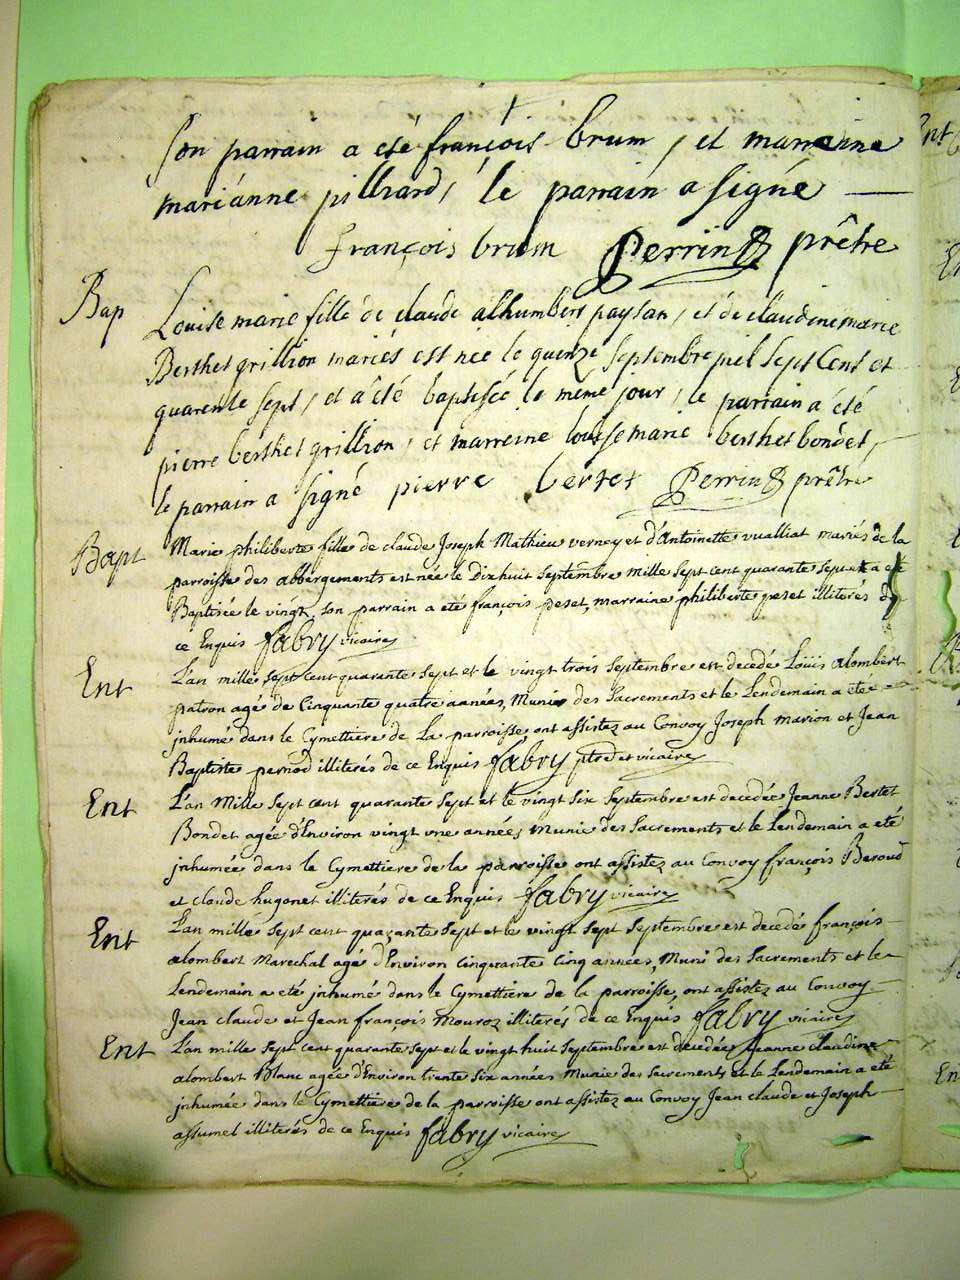 Son parrain a eté françois brum, et marreine
marianne pilliard, le parrain a signé
françois brum Perrin prêtre
Bap Louise marie fille de claude alhumbert paysan, et de claudine marie
Berthet grillion mariés est née le quinze septembre mil sept Cent et
quarente sept, et a été baptisée le même jour, le parrain a été
pierre berthet grillion, et marreine louise marie berthet bondet,
le parrain a signé pierre bertet Perrin prêtre
Bapt Marie philiberte fille de claude Joseph Mathieu verney et d'Antoinette vualliat mariés de la
parroisse des abbergements est née le Dixhuit septembre mille sept cent quarante sept et a eté
Baptisée le vingt, son parrain a eté françois peset, marraine philiberte peset illiterés de
ce Enquis fabry vicaire
Ent L'an mille sept cent quarante sept et le vingt trois septembre est decedé Loüis alombert
patron agé de Cinquante quatre années, Muni des Sacrements et le Lendemain a eté
jnhumé dans le Cymettiere de La parroisse, ont assistez au Convoy Joseph marion et Jean
Baptiste pernod illiterés de ce Enquis fabry ptre et vicaire
Ent L'an Mille Sept cent quarante sept et le vingt six septembre est decedée Jeanne Bertet
Bondet agée d'Environ vingt une années, Munie des Sacrements et le Lendemain a eté
jnhumée dans le Cymettiere de la parroisse ont assistez au Convoy françois Beroud
et claude hugonet illiterés de ce Enquis fabry vicaire
Ent L'an mille sept cent quarante sept et le vingt sept septembre est decedé françois
alombert Marechal agé d'Environ Cinquante Cinq années, Muni des Sacrements et le
Lendemain a eté jnhumé dans le Cymettiere de la parroisse, ont assistez au Convoy
Jean claude et Jean françois Mouroz illiterés de ce Enquis fabry vicaire
Ent L'an mille sept cent quarante sept et le vingt huit septembre est decedée Jeanne claudine
alombert Blanc agée d'Environ trente six années Munie des Sacrements et le Lendemain a eté
jnhumée dans le Cymettiere de la parroisse ont assistez au Convoy Jean claude et Joseph
assumel illiterés de ce Enquis fabry vicaire
Ent